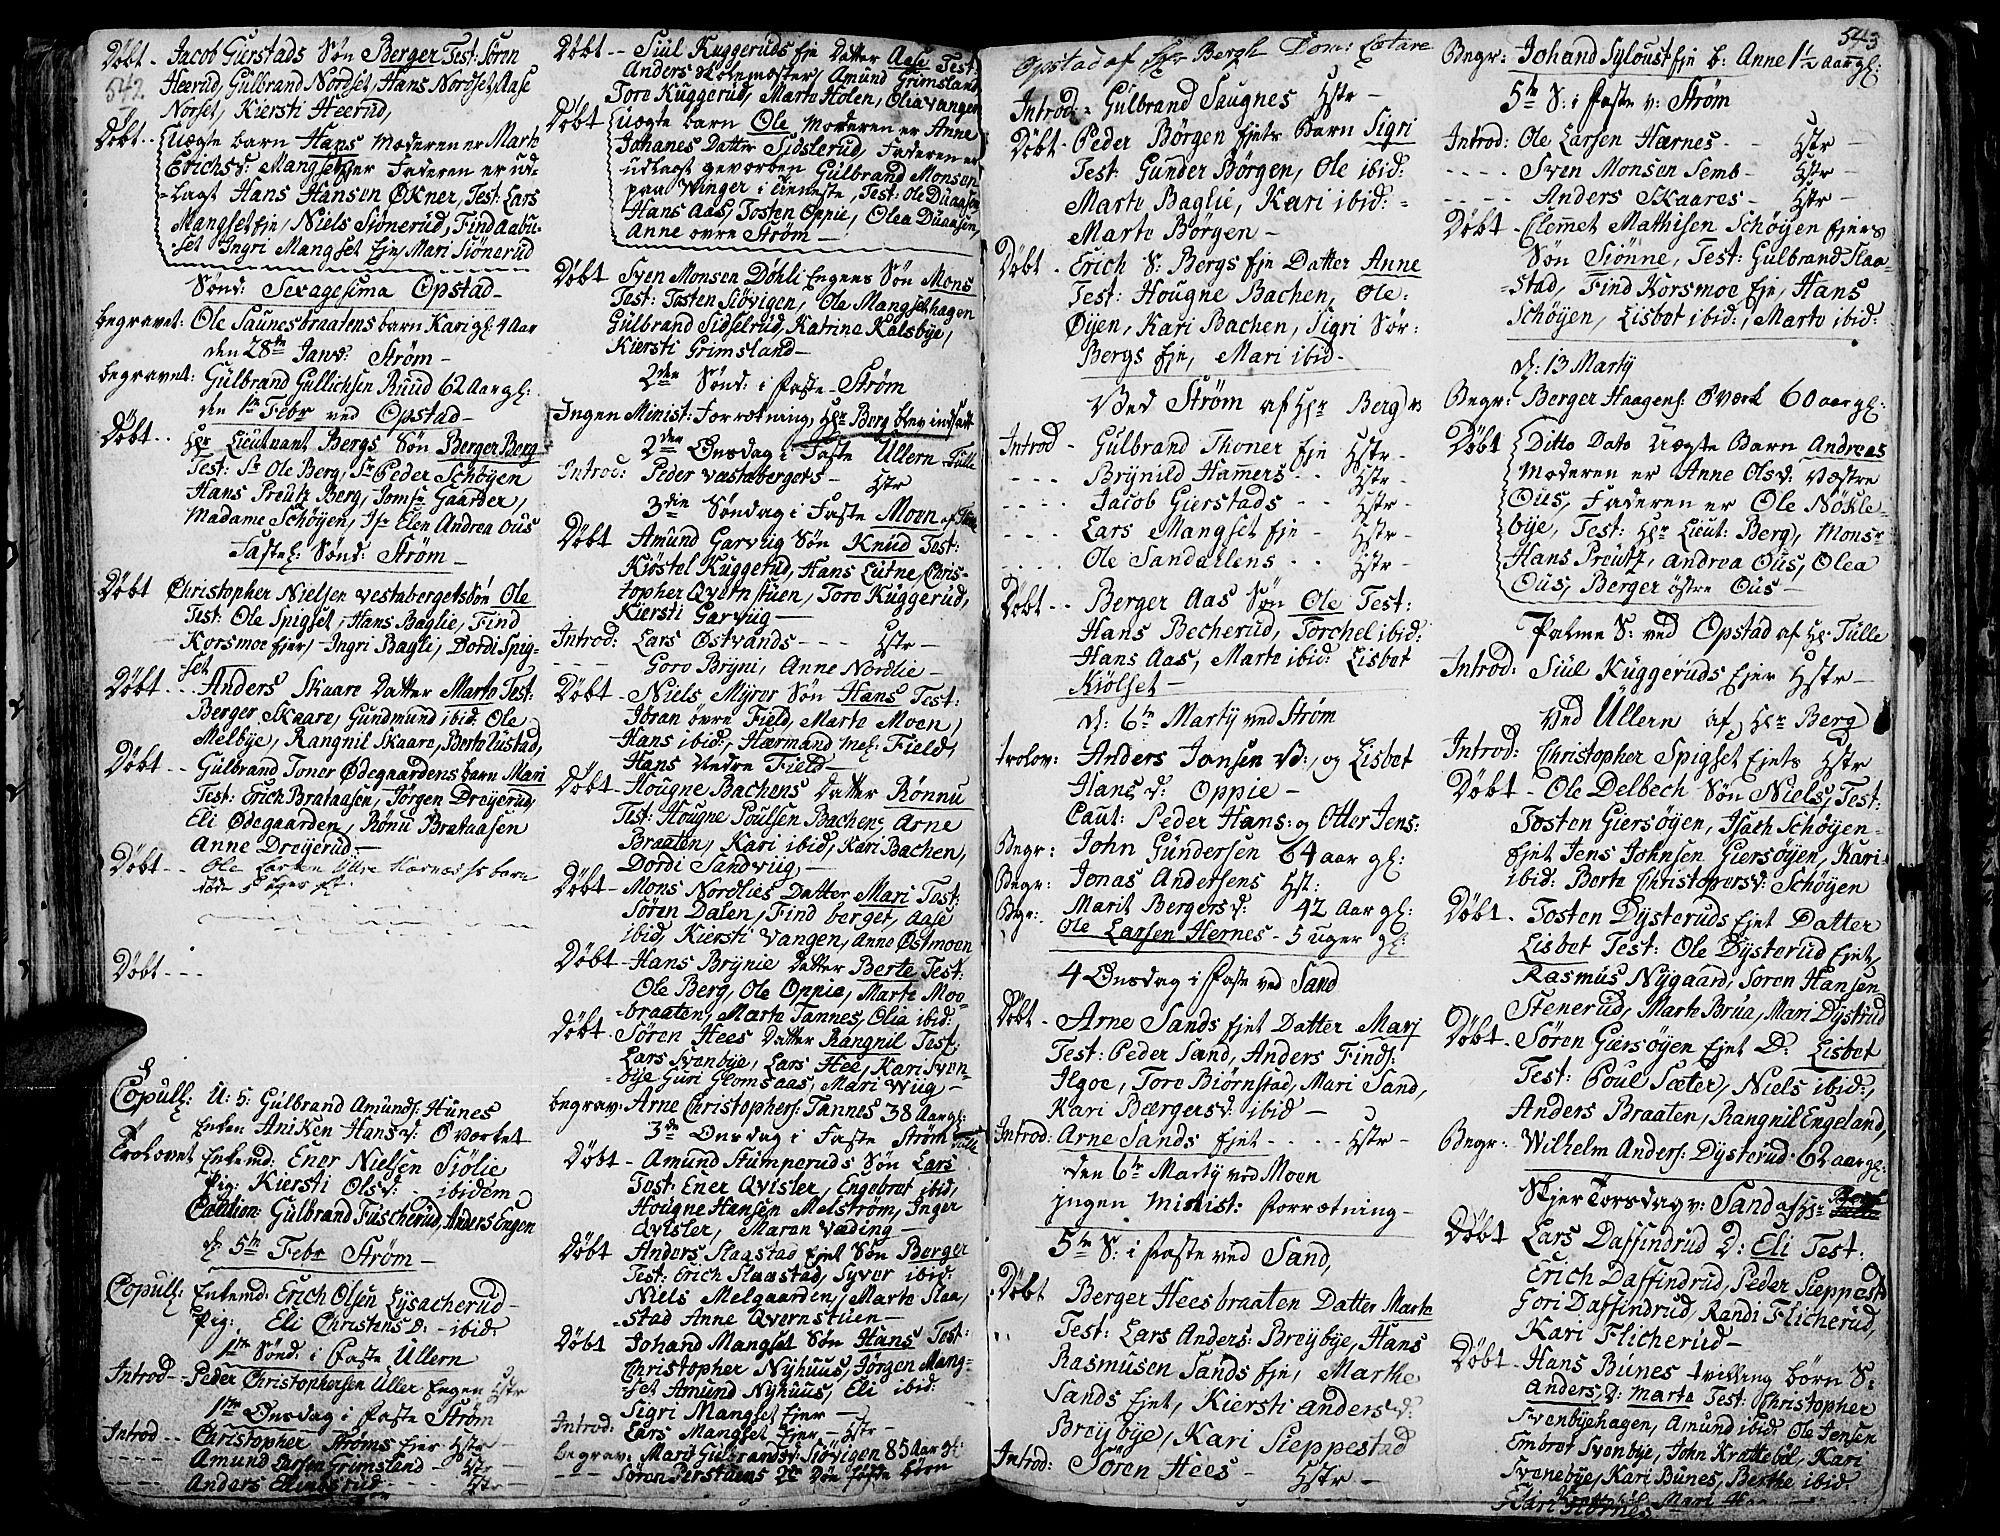 542.
Døbt - Jacob Gierstads Søn Berger Test: Sören
Heerud, Gulbrand Nordset, Hans Nordset, Aase
Norset, Kiersti Heerud,
Døbt - Uægte barn Hans Moderen er Marte
Erichsd: Mangset Faderen er ud-
-lagt Hans Hansen Økner, Test: Lars
Mangset Eje, Niels Siönerud, Find Aabu-
-set Ingri Mangset Eje, Mari Siönerud
Sønd: Sexagesima Opstad -
begravet: Ole Saunesbraatens barn Kari gl: 4 Aar
den 28de Janv: Strøm -
begravet: Gulbrand Gullichsen Ruud 62 Aar gl:
den 1te Febr ved Opstad -
Døbt - Hr Lieutnant Bergs Søn Berger Berg
Test: Sr Ole Berg, Sr Peder Schøyen
Hans Preutz Berg, Jomfr Gaarder,
Madame Schøyen, Jfr Elen Andrea Ous
Fastel: Sønd: Strøm -
Døbt Christopher Nielsen Vestabergets Søn Ole
Test: Ole Spigset, Hans Baglie, Find
Korsmoe Ejer, Ingri Bagli, Dordi Spig-
set
Døbt - Anders Skaare Datter Marte Test:
Berger Skaare, Gundmund ibid: Ole
Melbye, Rangnil Skaare, Berte Lustad,
Døbt - Gulbrand Toner Ødegaardens barn Mari
Test: Erich Brataasen, Jörgen Dreyerud,
Eli Ødegaarden, Rönu Brataasen
Anne Dreyerud -
Døbt - Ole Larsen Hærnæs barn
5 uger
Døbt - - -
Copull: U: 5: Gulbrand Amunds: Hunes
Enken Aniken Hansd: Overket
Trolovet Enkemd: Ener Nielsen Siölie
Pig: Kiersti Olsd: ibidem
Caution: Gulbrand Fuscherud, Anders Engen
d. 5te Febr Strøm -
Copull: Enkemd: Erich Olsen Lysacherud -
Pig: Eli Christensd: - ibid:
1te Sønd: i Faste Ullern
Introd - Peder Christophersen Uller Engen Hstr
1te Onsdag i Faste Strøm
Introd - Christopher Strøms Ejer Hstr -
- - - - Amund Larsen Grimsland - Hstr -
- - - - Anders - Hstr -
Døbt - Siul Kuggeruds Eje Datter Aase Test:
Anders Holemoster, Amund Grimsland
Tore Kuggerud, Marte Holen, Olia Vangen
Døbt Uægte barn Ole Moderen er Anne
Johanes Datter Sidslerud, Faderen er
udlagt gevorben Gulbrand Monsen
paa Winger i tieneste, Test: Ole Duaasen
Hans Aas, Tosten Oppie, Olea Duaasen,
Anne övre Strøm -
Døbt Sven Monsen Döhli Engens Søn Mons
Test: Tosten Siövigen, Ole Mangsethagen
Gulbrand Sidselrud, Katrine Kalsbye,
Kiersti Grimsland -
2den Sønd: i Faste Strøm
Ingen Minist: Forrætning, Hr Berg blev indsatt
2den Onsdag i Faste Ullern Tulle
Introd: Peder Vestabergets - Hstr
3die Søndag i Faste Moen af Tulle
Døbt Amund Garviig Søn Knud Test:
Kiöstel Kuggerud, Hans Lutne, Chris-
topher Qvernstuen, Tore Kuggerud,
Kiersti Garviig -
Introd: Lars Østvands - Hstr -
- - - - Goro Bryni, Anne Nordlie -
Døbt - Niels Myrer Søn Hans Test:
Jöran övre Field, Marte Moen,
Hans ibid:, Hærmand mel: Field,
Hans Nedre Field -
Døbt - Hougne Bachens Datter Rönnu
Test: Hougne Poulsen Bachen, Arne
Braaten, Kari ibid, Kari Bachen,
Dordi Sandviig, -
Døbt - Mons Nordlies Datter Mari Test:
Sören Dalen, Find berget, Aase
ibid, Kiersti Vangen, Anne Østmoen
Døbt - Hans Brynie Datter Berte Test:
Ole Berg, Ole Oppie, Marte Moo-
-braaten, Marte Tannes, Olia ibid:
Døbt - Sören Hees Datter Rangnil Test:
Lars Svenbye, Lars Hee, Kari Sven-
-bye Guri Glomsaas, Mari Wiig -
begrav: Arne Christophers: Tannes 38 Aar gl:
3de Onsdag i Faste Strøm Tulle
Døbt - Amund Stumperuds Søn Lars
Test: Ener Qvisler, Engebret ibid,
Hougne Hansen Melström, Inger
Qvisler, Maren Vading -
Døbt Anders Slaastad Ejet Søn Berger
Test: Erich Slaastad, Syver ibid:
Niels Melgaarden, Marte Slaa-
-stad Anne Qvernstuen -
Døbt Johand Mangset Søn Hans Test:
Christopher Nyhuus, Jörgen Mang-
-set Amund Nyhuus, Eli ibid:
Sigri Mangset Ejer -
Introd: Lars Mangset Ejer - Hstr -
begrav: Marit Gulbrandsd: Siövigen 85 Aar gl:
- - - Sören børn
543
Opstad af Hr Bergh Dom: Lætare
Introd: Gulbrand Saugnes Hstr -
Døbt - Peder Børgen Ejets Barn Sigri
Test: Gunder Børgen, Ole ibid:
Marte Baglie, Kari ibid: -
Marte Børgen -
Døbt - Erich S: Bergs Eje Datter Anne
Test: Hougne Bachen, Ole:
Øyen, Kari Bachen, Sigri Sør:
Bergs Eje, Mari ibid -
Ved Strøm af Hr Bergh
Introd - Gulbrand Thoner Eje Hstr -
- - - Brynild Hamers - - Hstr -
- - - - Jacob Gierstads - - Hstr -
- - - - Lars Mangset Eje - Hstr -
- - - - Ole Sandallens - - Hstr -
Døbt - - Berger Aas Søn Ole Test:
Hans Becherud, Torchel ibid:
Hans Aas, Marte ibid: Lisbet
Kiölset -
d: 6te Martÿ ved Strøm
trolov: Anders Jonsen Vd:, og Lisbet
Hans d: Oppie -
Caut: Peder Hans: og Otter Jens:
Begr: John Gundersen 64 aar gl:
Begr: Jonas Andersens Hst:
Marit Bergersd: 42 Aar gl:
Begr: Ole Larsen Hernes - 5 uger gl:
4 Onsdag i Faste ved Sand
Døbt - Arne Sands Ejet Datter Mari
Test: Peder Sand, Anders Finds:
Ilgoe, Tore Biørnstad, Mari Sand,
Kari Bærgersd: ibid -
Introd: Arne Sands Ejet - - - Hstr -
den 6te Martÿ ved Moen
ingen Minist: Forrætning -
5te S: i Faste ved Sand,
Døbt Berger Heesbraaten Datter Marte
Test: Lars Anders: Breybye, Hans
Rasmusen Sands Eje, Marthe
Sands Ejet, Kiersti Anders d:
Breybye, Kari Sieppestad
Introd: Sören Hees - Hstr -
Begr: Johand Syloust Eje b: Anne 1½ aar gl:
5te S: i Faste v: Strøm
Introd: Ole Larsen Hærnes - - Hstr -
- - - - Sven Monsen Semb - Hstr -
- - - - Anders Skaares - Hstr -
Døbt - Clemet Mathisen Schøyen Ejers
Søn Siönne, Test: Gulbrand Slaa-
-stad, Find Korsmoe Eje, Hans
Schøyen, Lisbet ibid:, Marte ibid:
d: 13 Martÿ
Begr: Berger Haagens: Overk 60 aar gl:
Døbt Ditto Dato Uægte Barn Andreas
Moderen er Anne Olsd: Væstre
Ous, Faderen er Ole Nökle-
bye, Test: Hr Lieut: Berg, Monsr
Hans Preutz, Andrea Ous, Olea
Ous, Berger östre Ous -
Palme S: ved Opstad af Hr: Tulle
Introd: Siul Kuggeruds Ejer Hstr -
Ved Ullern af Hr Berg
Introd: Christopher Spigset Ejets Hstr
Døbt - Ole Delbech Søn Niels, Test:
Tosten Giersøyen, Isach Schøyen-
Ejet Jens Johnsen Giersøyen, Kari
ibid: Berte Christopersd: Schøyen
Døbt - Tosten Dysteruds Ejet Datter
Lisbet Test: Ole Dysterud Ejet,
Rasmus Nygaard, Soren Hansen
Stenerud, Marte Brua, Mari Dystrud
Døbt - Sören Giersøyen Ejet D: Lisbet
Test: Poul Sæter, Niels ibid:,
Anders Braaten, Rangnil Engeland,
Begr: Wilhelm Anders: Dysterud 62 aar gl:
Skjer Torsdag v: Sand af Hr Berg
Døbt Lars Daffindrud D: Eli Test:
Erich Daffindrud, Peder Sieppestd
Gori Daffindrud, Randi Flicherud,
Kari Flicherud -
Døbt - Hans Bunes tvilling børn S:
Anders D: Marte Test: Christopher
Svenbyehagen, Amund ibid: Ole Jensen
Embret Svenbye, John Krattebøl, Kari
Svenebye, Kari Bunes, Berthe ibid:
Kari